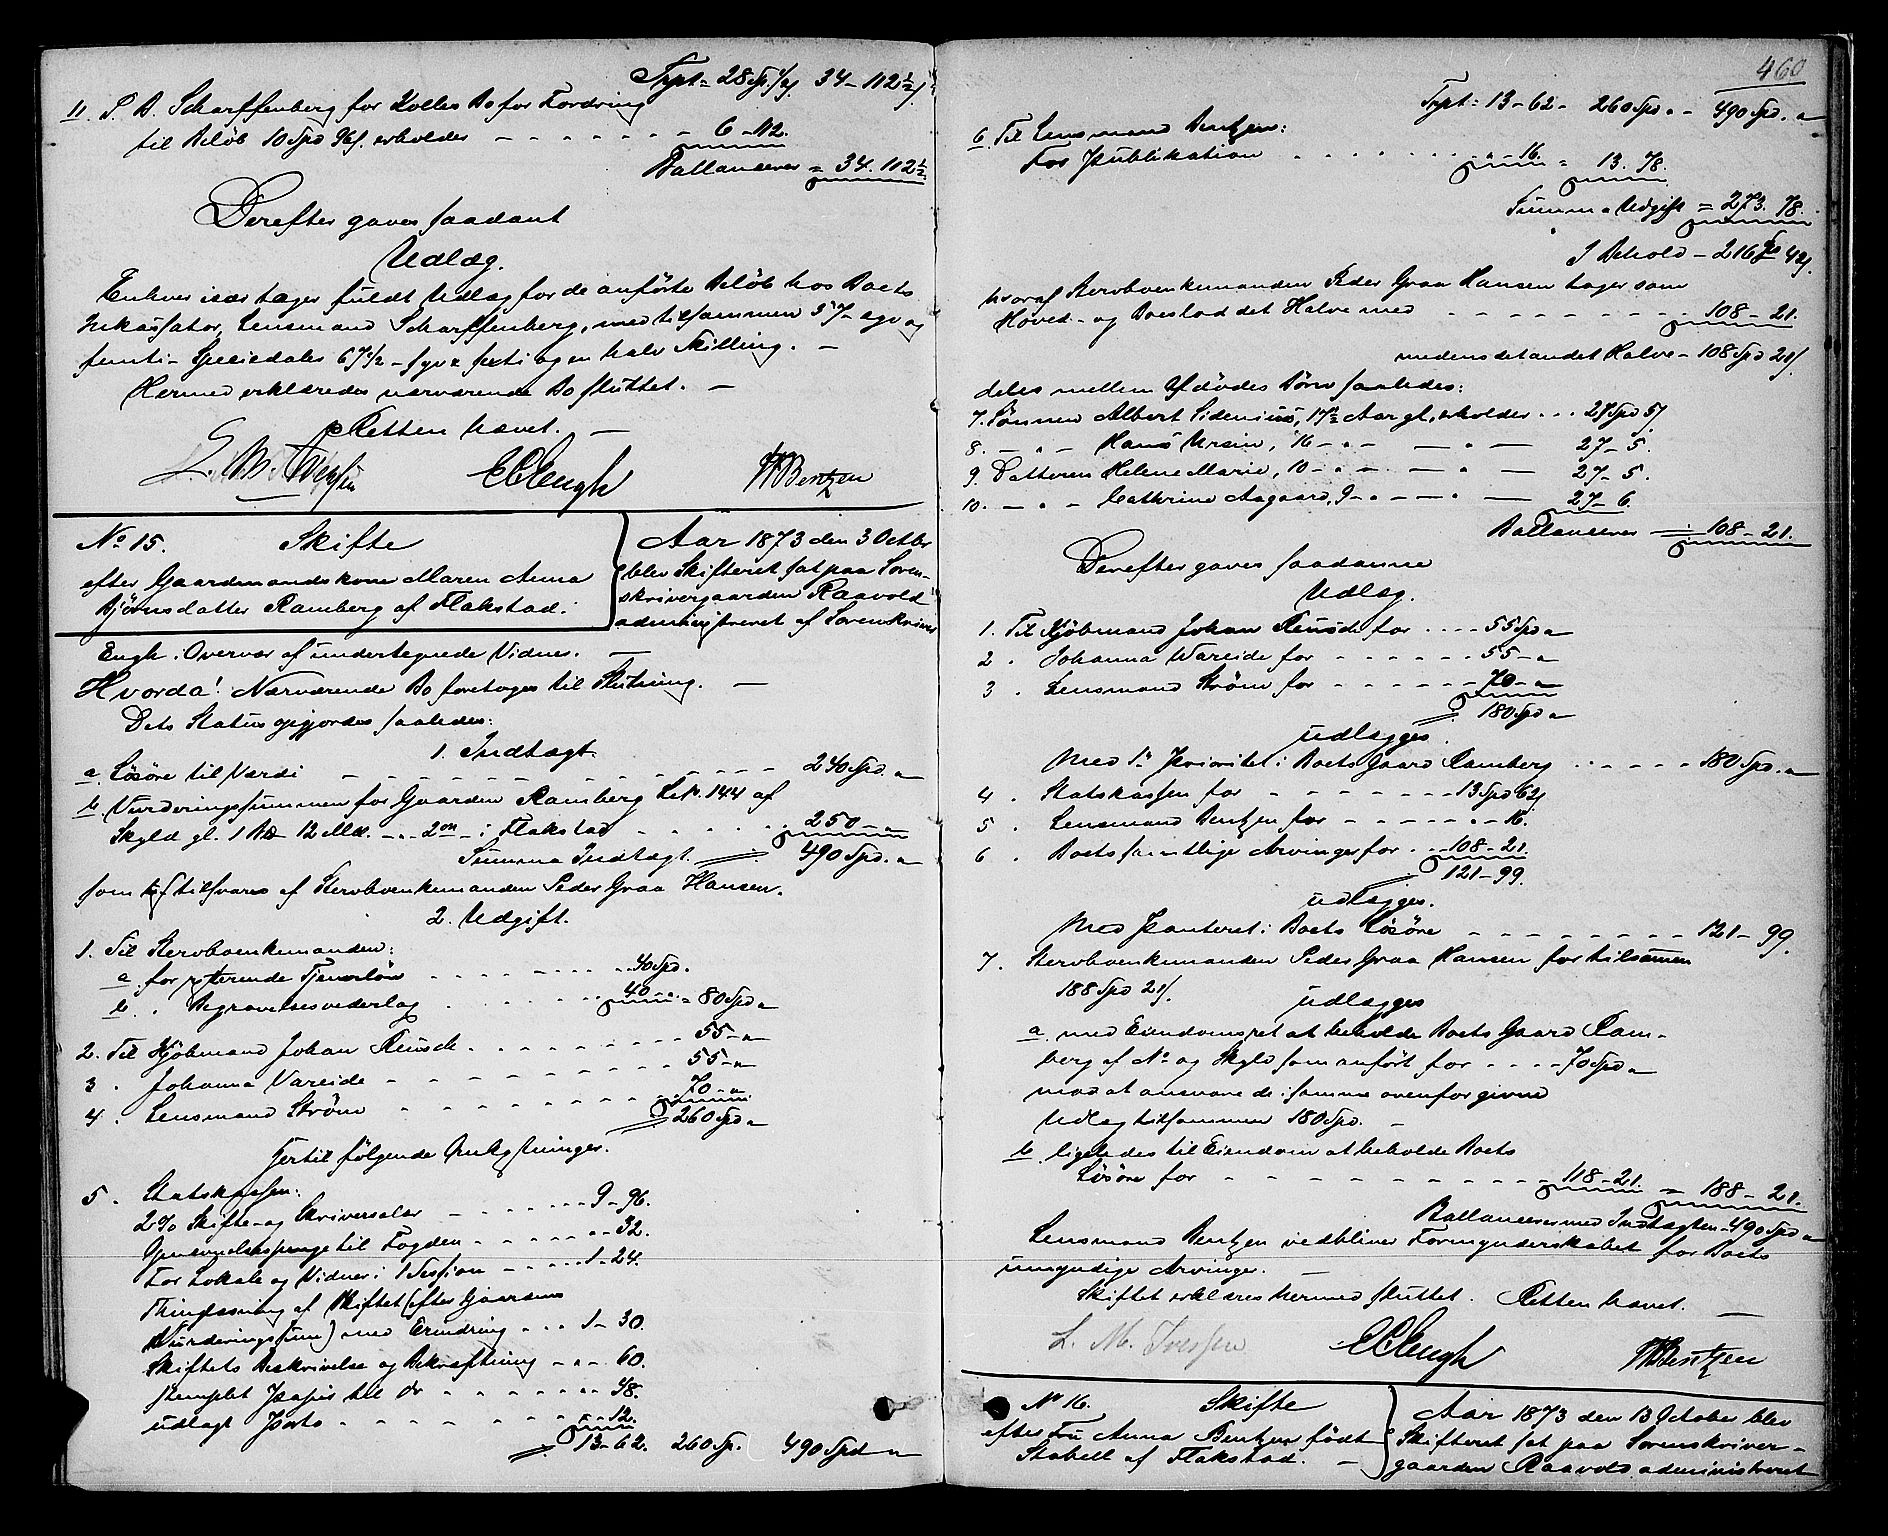 11. P. A. Scharffenberg for Kolles Bo for Fordring
til Beløb 10 Spd 96 s. erholdes - - - - - - 6 - 112.
Ballancerer = 34. 112½
Derefter gaves saadant
Udlæg.
Enhver især tager fuldt Udlæg for de anførte Beløb hos Boets
Inkassator, Lensmand Scharffenberg, med tilsammen 57 - syv og
femti - Speciedaler 67½ - syv og sexti og en halv Skilling. -
Hermed erklæredes nærværende Bo sluttet. -
Retten hævet. -
L. M. Iversen EC Eengh HBentzen
No 15. Skifte
efter Gaardmandskone Maren Anna
Bjørnsdatter Ramberg af Flakstad.
Aar 1873 den 3 Octbr
blev Skifteret sat paa Soren-
skrivergaarden Raavold
administreret af Sorenskriver
Engh i Overvær af undertegnede Vidner. -
Hvorda! Nærværende Bo foretoges til Slutning. -
Dets Status opgjordes saaledes:
1. Indtægt.
a. Løsøre til Værdi - - - - 240 Spd. "
b. Vurderingssummen for Gaarden Ramberg L.N. 144 af
Skyld gl. 1 Mk 12 . . . i Flakstad . . . . 250 - "
Summa Indtægt. 490 Spd. "
som tilsvares af Stervboenkemanden Peder Graa Hansen.
2. Udgift.
1. Til Stervboenkemanden:
a. for resterende Tjenerløn . . . . 40 Spd.
b. " Begravelsesvederlag . . . . 40 " = 80 Spd "
2. Til Kjøbmand Johan Reusch . . . . 55 - "
3 . Johanna Vareide - - - - 55 - "
4. . Lensmand Strøm - - - - 70 - "
260 Spd "
Hertil følgende Omkostninger.
5 . Statskassen:
2 % Skifte- og Skriversalær - - - 9 - 96.
Opnævnelsespenge til Fogden - - - " - 32.
For Lokale og Vidner i 1 Session - - - 1 - 24.
Thinglæsning af Skiftet (efter Gaardens
Vurderingssum) med Erindring . . . 1 - 30.
Skiftets Beskrivelse og Bekræftning - " - 60.
Stemplet Papir til do - - - " - 48.
udlagt Porto . - - - " - 12.
13 - 62. 260 Sp. 490 Spd "
460
Trpt = 13 - 62 - 260 Spd " - 490 Spd. "
6. Til Lensmand Bentzen:
For Publikation . . . . " - 16. = 13. 78.
Summa Udgift = 273. 78.
I Behold - 216 Spd 42 s.
hvoraf Stervboenkemanden Peder Graa Hansen tager som
Hoved- og Boeslod det Halve med - - - - 108 - 21.
medens det andet Halve - 108 Spd 21 s.
deles mellem Afdødes Børn saaledes:
7. Sønnen Albert Sidenius, 17½ Aar gl., erholder . . . 27 Spd 5 s.
8. - " - Hans Ursin, 16 - " - - " - 27 - 5.
9. Datteren Helene Marie, 10 - " - - " - 27 - 5.
10. - " - Cathrine Aagaard, 9 - " - - " - 27 - 6.
Ballancerer = 108 - 21.
Derefter gaves saadanne
Udlæg.
1. Til Kjøbmand Johan Reusch for . . . . 55 Spd "
2 . Johanna Wareide for - - - - 55 - "
3 . Lensmand Strøm for - - - - 70 - "
180 Spd "
udlægges
Med 1ste Prioritet i Boets Gaard Ramberg . . . . 180 Spd. "
4 . Statskassen for - - - - 13 Spd 62 s.
5 . Lensmand Bentzen for - - - - " - 16.
6 . Boets samtlige Arvinger for . . 108 - 21.
121 - 99.
udlægges.
Med Panteret i Boets Løsøre - - - - 121 - 99.
7. Stervboenkemanden Peder Graa Hansen for tilsammen
188 Spd 21 s. udlægges
a. med Eiendomsret at beholde Boets Gaard Ram-
berg af No og Skyld som anført for - - - - 70 Spd "
mod at ansvare de i samme ovenfor givne
Udlæg tilsammen 180 Spd. -
b. ligeledes til Eiendom at beholde Boets
Løsøre for - - - - 118 - 21. = 188 - 21.
Ballancerer med Indtægten - 490 Spd "
Lensmand Bentzen vedbliver Formynderskabet for Boets
umyndige Arvinger. -
Skiftet erklæres hermed sluttet. Retten hævet. -
L. M. Iversen EC Eengh HBentzen
No 16. Skifte
efter Fru Anna Bentzen født
Stabell af Flakstad. -
Aar 1873 den 13 October blev
Skifteret sat paa Sorenskriver-
gaarden Raavold administreret